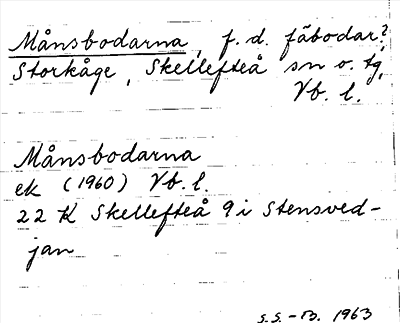 Månsbodarna, f.d. fäbodar?
Storkåge, Skellefteå sn o. tg,
Vb. l.
Månsbodarna
ek (1960) Vb. l.
22 K Skellefteå 9 i Stensved-
jan
S.S.-B. 1963